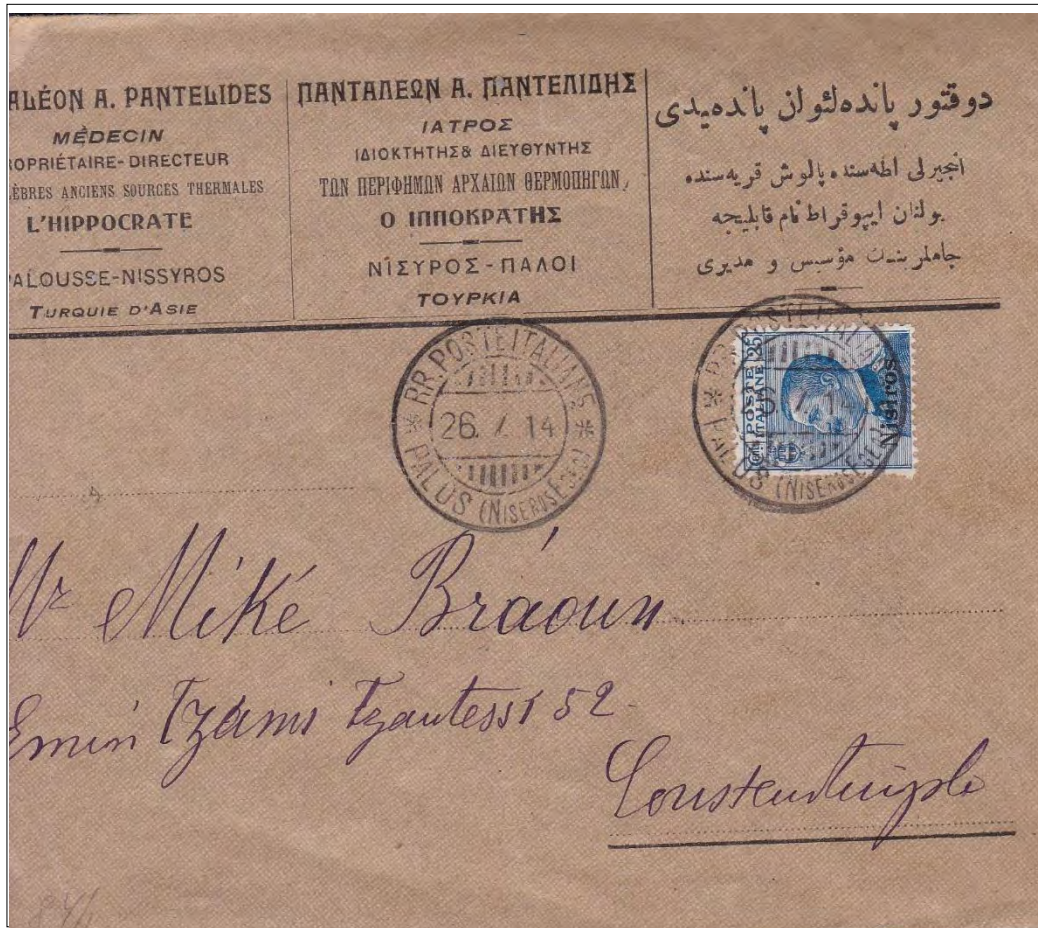 ALÉON A. PANTELIDES
MÉDECIN
ROPRIÉTAIRE-DIRECTEUR
ÈBRES ANCIENS SOURCES THERMALES
L'HIPPOCRATE
ALOUSSE-NISSYROS
TURQUIE D'ASIE
ΠΑΝΤΑΛΕΩΝ Α. ΠΑΝΤΕΛΙΔΗΣ
ΙΑΤΡΟΣ
ΙΔΙΟΚΤΗΤΗΣ & ΔΙΕΥΘΥΝΤΗΣ
ΤΩΝ ΠΕΡΙΦΗΜΩΝ ΑΡΧΑΙΩΝ ΘΕΡΜΟΠΗΓΩΝ,
Ο ΙΠΠΟΚΡΑΤΗΣ
ΝΙΣΥΡΟΣ-ΠΑΛΟΙ
ΤΟΥΡΚΙΑ
دوقتور پانده‌لئوان پانده‌یدی
انجیرلی اطه‌سنده پالوش قریه‌سنده
بولنان ایپوقراط نام قابلیجه
مؤسس و مدیری
RR. POSTE ITALIANE
26. 14
PALUS (NISEROS EGEO)
RR. POSTE ITALIANE
14
PALUS (NISEROS EGEO)
POSTE ITALIANE
25
Nisiros
Mr Miké Bráoun
Emin Tzami Tzautessi 52
Constentinople